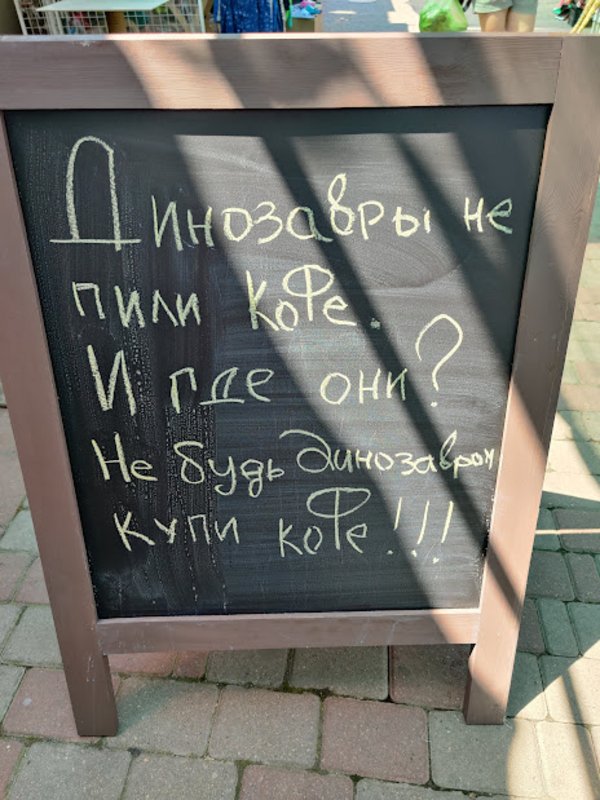 Динозавры не
пили кофе.
И где они?
Не будь динозавром
купи кофе!!!